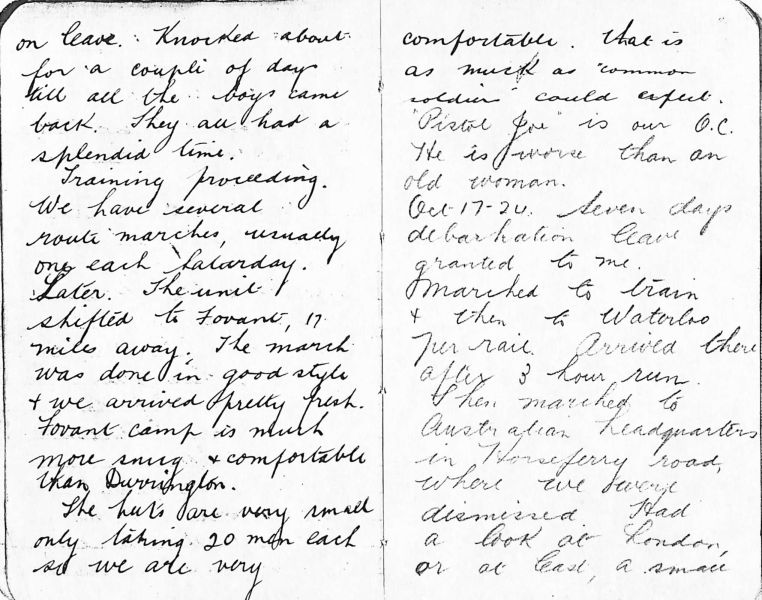 on leave. Knocked about
for a couple of days
till all the boys came
back. They all had a
splendid time.
Training proceeding.
We have several
route marches, usually
one each Saturday.
Later. The unit
shifted to Fovant, 17
miles away. The march
was done in good style
& we arrived pretty fresh.
Fovant camp is much
more snug & comfortable
than Durrington.
The huts are very small
only taking 20 men each
so we are very
comfortable. that is
as much as "common
soldier" could expect.
"Pistol Joe" is our O.C.
He is worse than an
old woman.
Oct-17-24. Seven days
debarkation leave
granted to me.
Marched to train
& then to Waterloo
per rail. Arrived there
after 3 hour run.
Then marched to
Australian headquarters
in Horseferry road,
where we were
dismissed. Had
a look at London,
or at least, a small